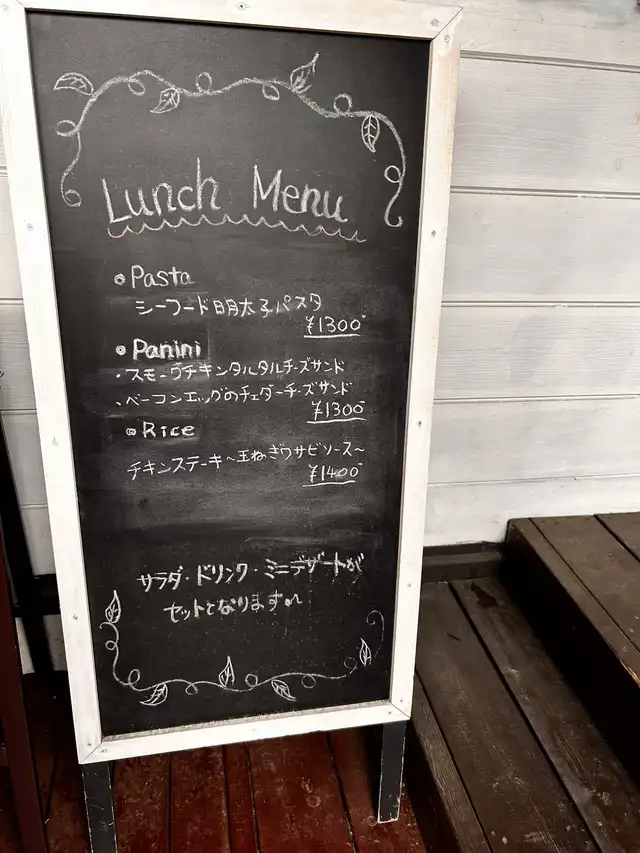 Lunch Menu
Pasta
シーフード明太子パスタ
¥1300-
Panini
・スモークチキンタルタルチーズサンド
・ベーコンエッグのチェダーチーズサンド
¥1300-
Rice
チキンステーキ〜玉ねぎワサビソース〜
¥1400-
サラダ・ドリンク・ミニデザートが
セットとなります